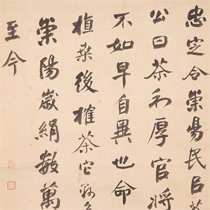 忠定令崇陽民
公曰茶利厚官將
不如早自異也命
植桑後榷茶它
崇陽歲絹數萬
至今